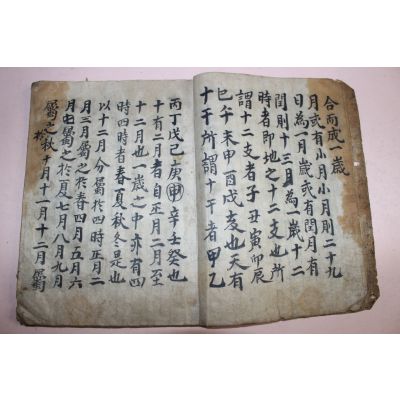 合而成一歲
月或有小月小月則二十九
日為一月歲或有閏月有
閏則十三月為一歲十二
時者即地之十二支也所
謂十二支者子丑寅卯辰
巳午未申酉戌亥也天有
十干所謂十干者甲乙
丙丁戊己庚甲辛壬癸也
十有二月者自正月二月至
十二月也一歲之中亦有四
時四時者春夏秋冬是也
以十二月分屬於四時正月二
月三月屬之於春四月五月六
月七屬之於夏七月八月九月
屬之於秋十月十一月十二月屬